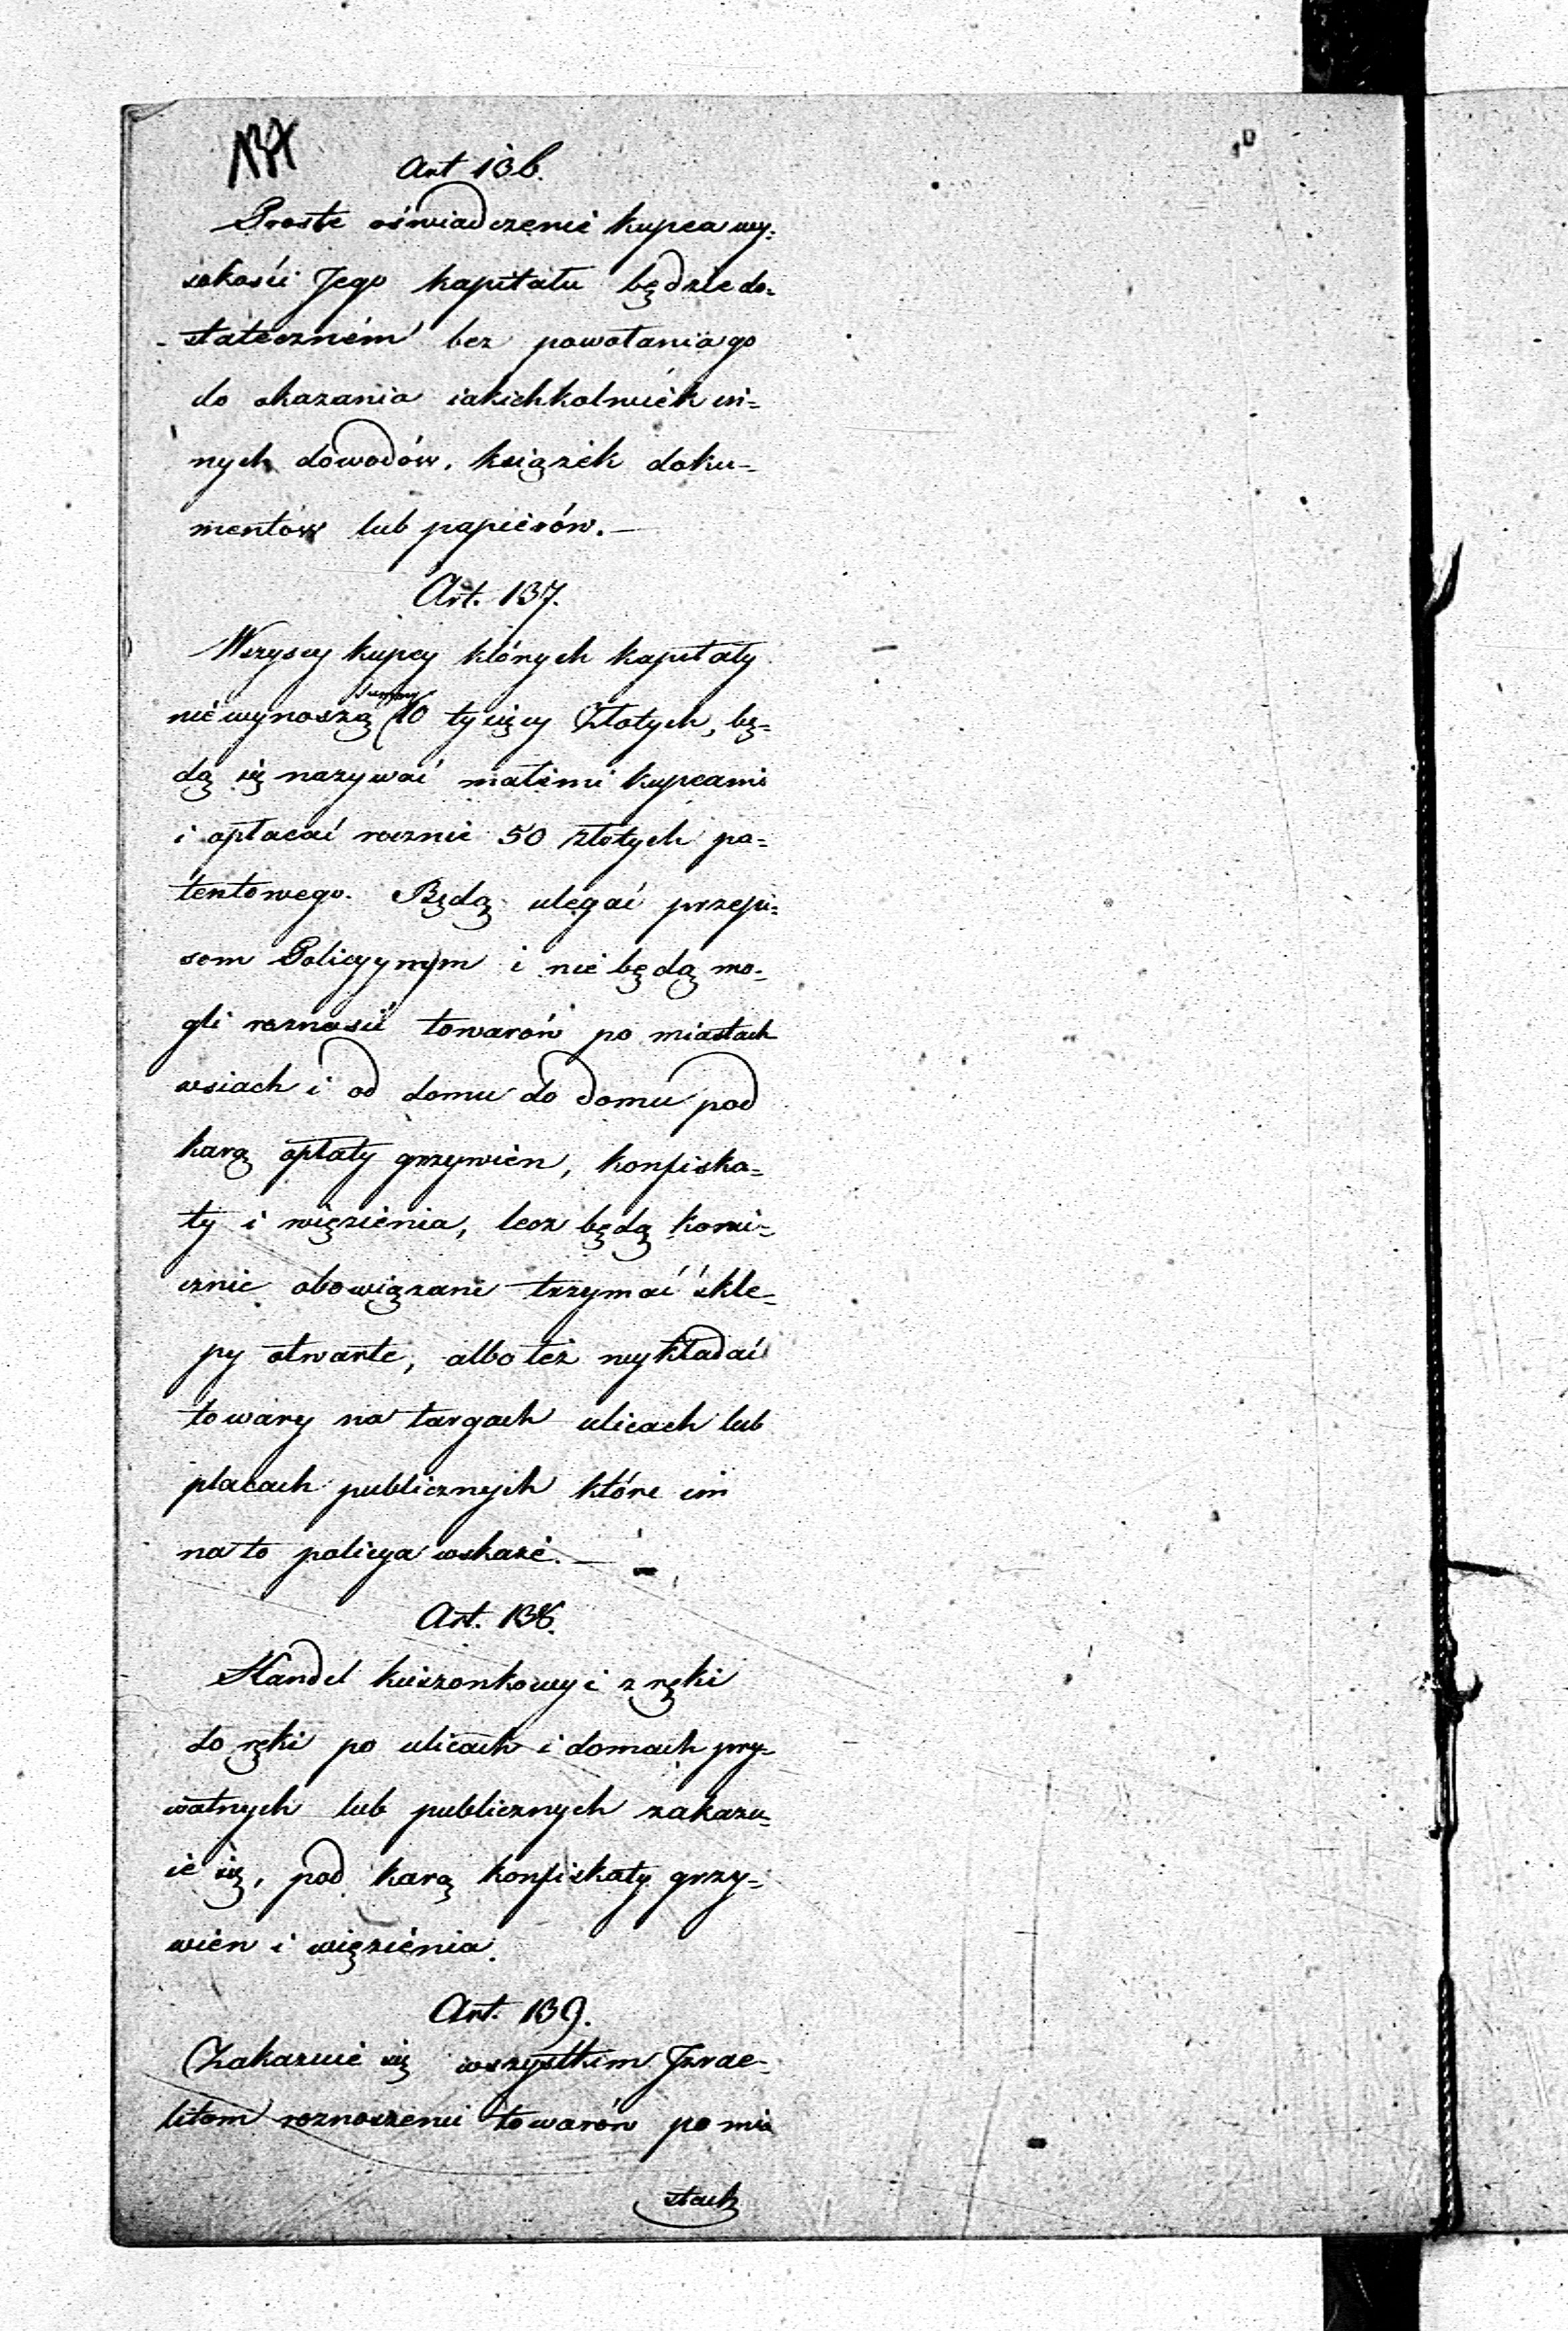 137
Art 136.
Proste oświadczenie kupca wy-
sokości Jego kapitału będzie do-
stateczném bez powołania go
do okazania iakichkolwiek in-
nych dowodów, książek doku-
mentów lub papierów. —
Art. 137.
Wszyscy kupcy których kapitały
nie wynoszą summy 10 tysięcy Złotych, bę-
dą się nazywać małemi kupcami
i opłacać rocznie 50 złotych pa-
tentowego. Będą ulegać przepi-
som Policyynym i nie będą mo-
gli roznosić towarów po miastach
wsiach i od domu do domu pod
karą opłaty grzywien, konfiska-
ty i więzienia, lecz będą koni-
cznie obowiązani trzymać skle-
py otwarte, albo też wykładać
towary na targach ulicach lub
placach publicznych które im
na to policya wskaże. —
Art. 138.
Handel kieszonkowy i z ręki
do ręki po ulicach i domach pry-
watnych lub publicznych zakazu-
ie się, pod karą konfiskaty grzy-
wien i więzienia.
Art. 139.
Zakazuie się wszystkim Izrae-
litom roznoszenie towarów po mia
stach